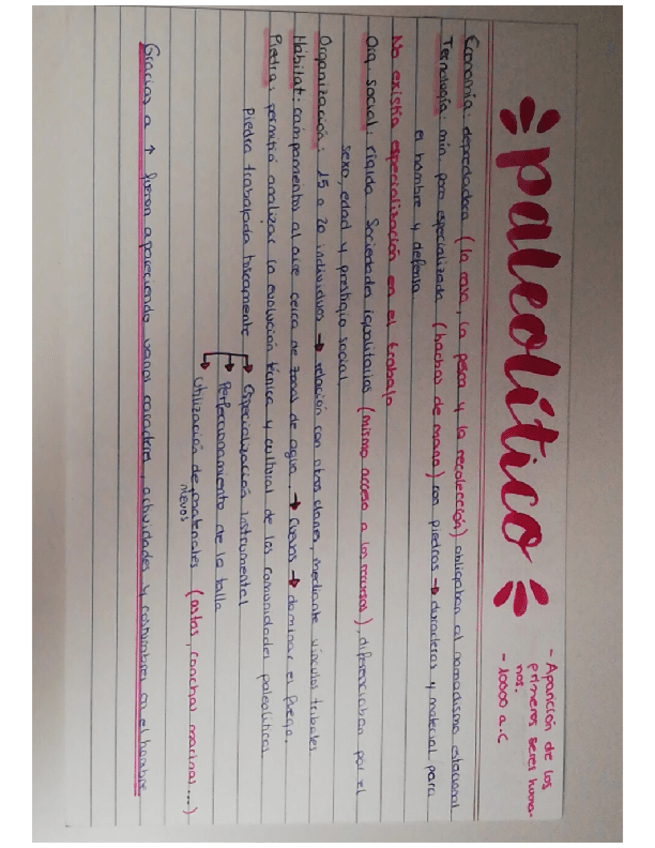 paleolítico
- Aparición de los
primeros seres huma-
nos.
- 10000 a.C
Economía: depredadora (la caza, la pesca y la recolección) obligaban al nomadismo estacional
Tecnología: min poco especializada (hachas de mano) con piedras → duraderas y material para
el hombre y defensa
No existía especialización en el trabajo
Org. social: rígida Sociedades igualitarias (mismo acceso a los recursos), diferenciaban por el
sexo, edad y prestigio social
Organización: 15 a 20 individuos → relación con otros clanes, mediante vínculos tribales
Habitat: campamentos al aire cerca de zonas de agua. → Cuevas → dominar el fuego.
Piedra: permitió analizar la evolución técnica y cultural de las comunidades paleolíticas
Piedra trabajada toscamente → especialización instrumental
→ Perfeccionamiento de la talla
→ Utilización de materiales (astas, conchas marinas...)
nuevos
Gracias a ↑ fueron apareciendo varios caracteres, actividades y costumbres en el hombre